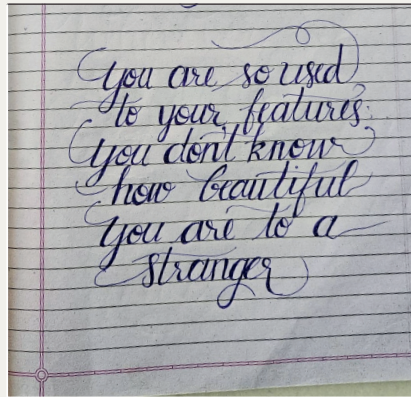 you are so used
to your features.
you don't know
how beautiful
you are to a
stranger